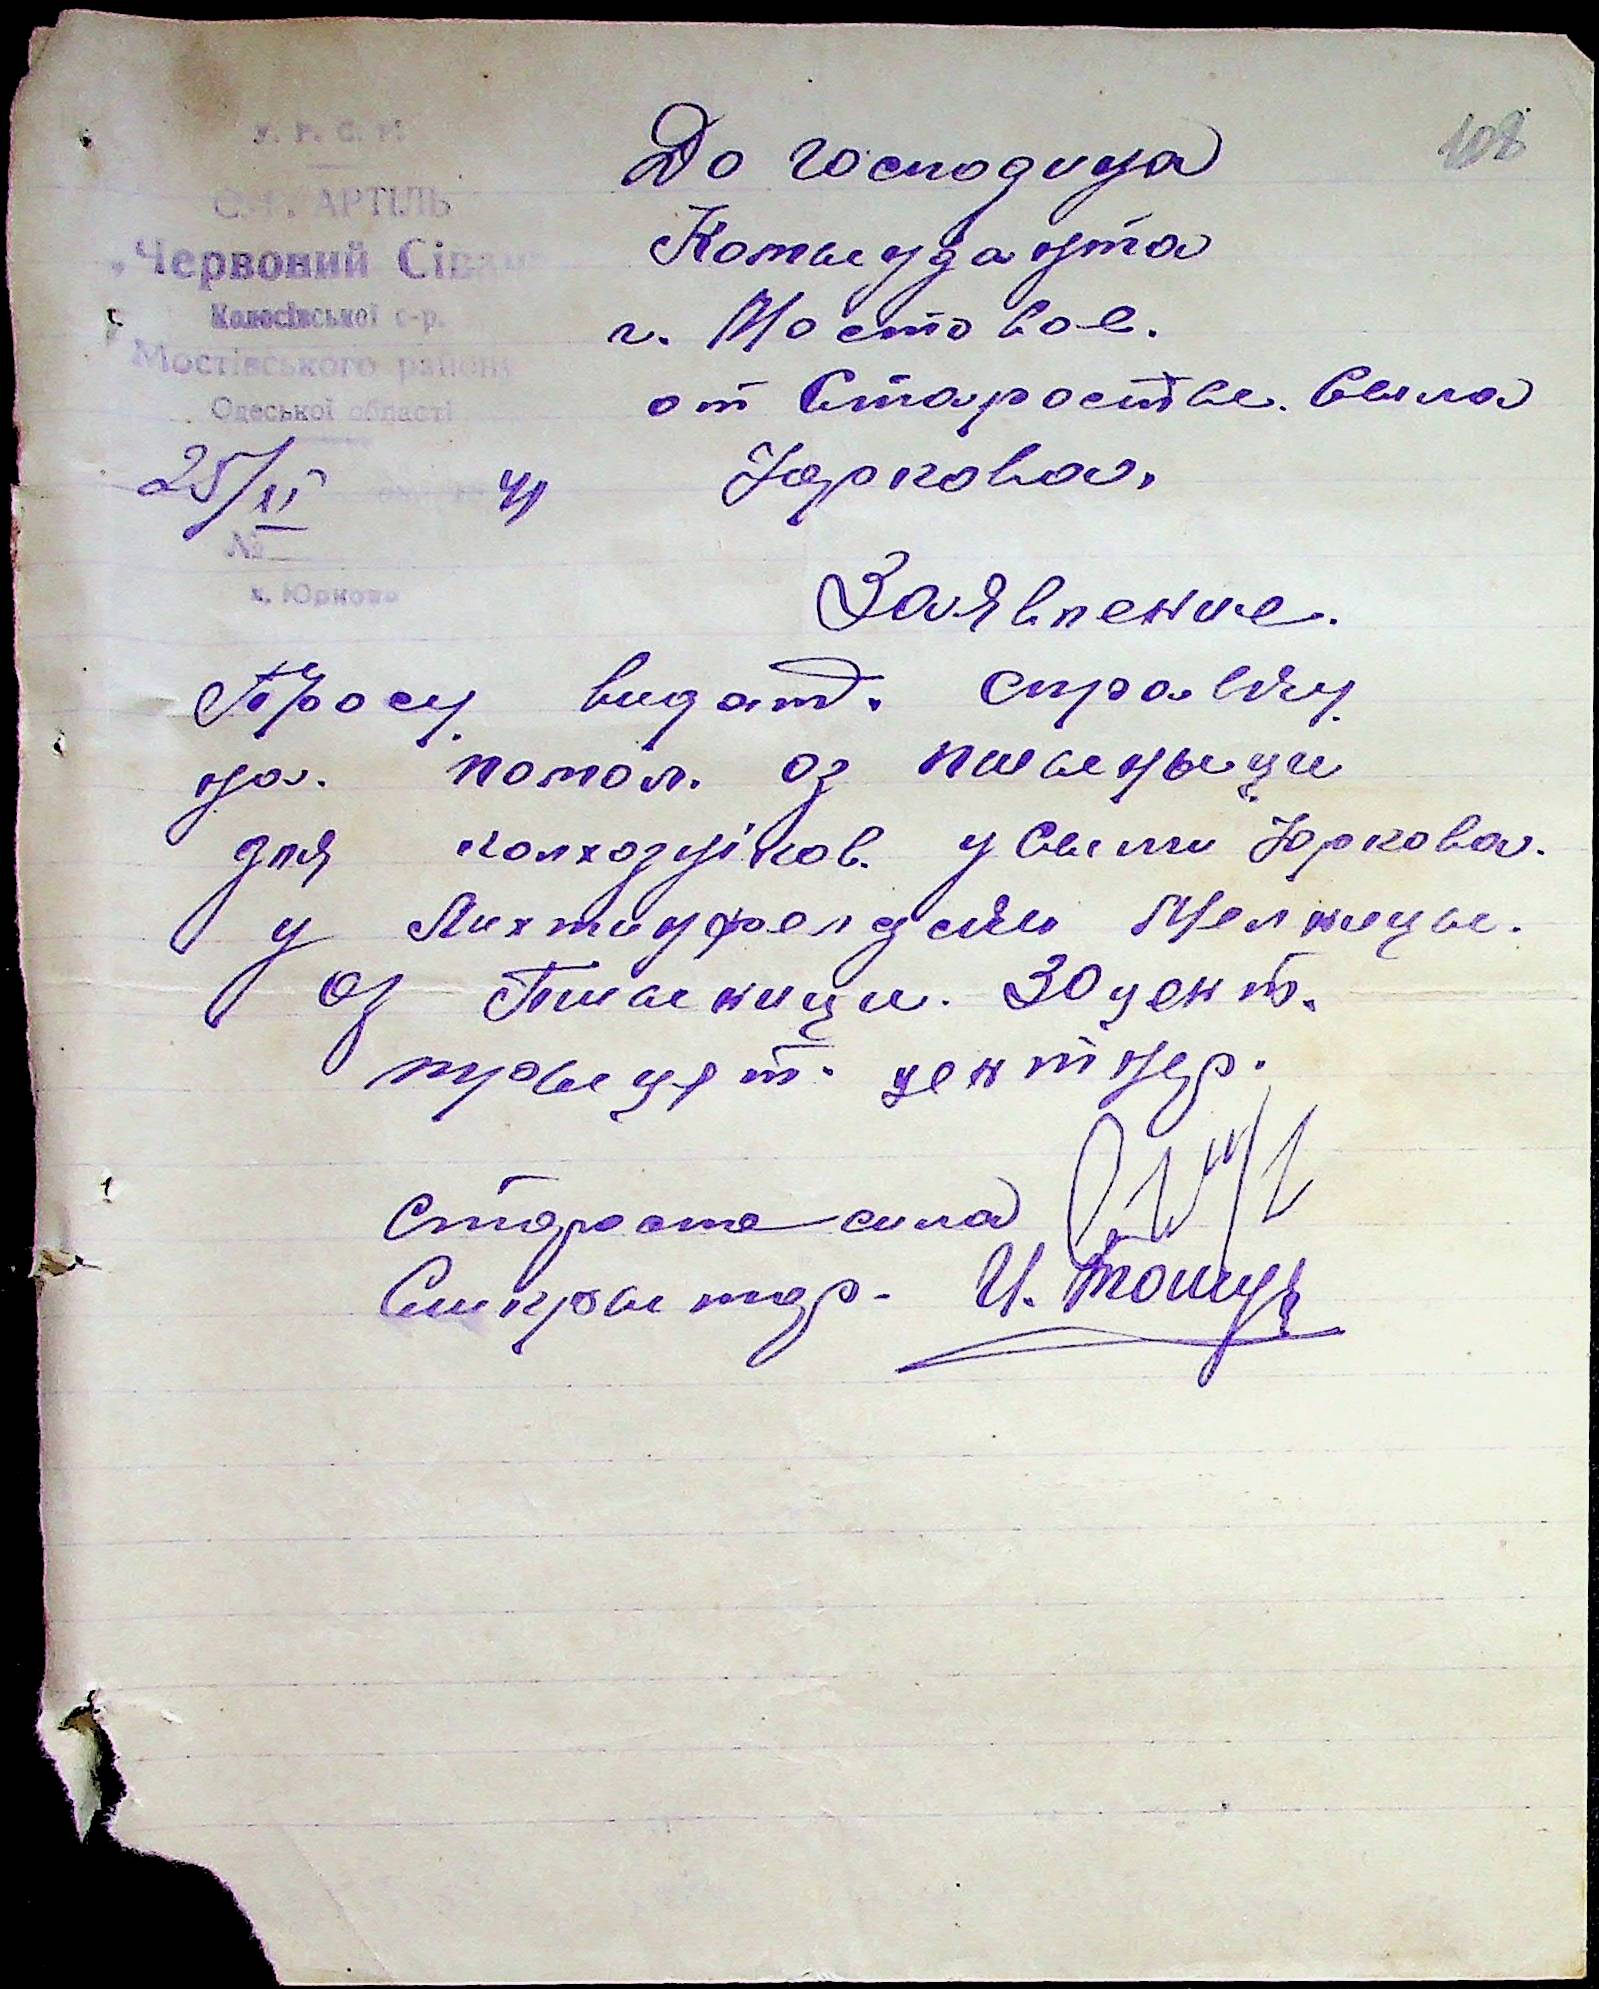 108
У. Р. С. Р.
С.-Г. АРТІЛЬ
„Червоний Сівач
Колосівської с-р.
Мостівського району
Одеської області
25/XI 41
№
х. Юрково
До господина
Комендант
г. Мостовое.
от Старосты. Села
Юркова.
Заявление.
Просу видат. справку
на. помол. оз пшеныци
для колхозніков. у Сели Юркова.
у Лихтинфелдски Мелницы.
оз Пшеници. 30 цент.
трыцят. центнер.
Староста села
Сикрытар. И.